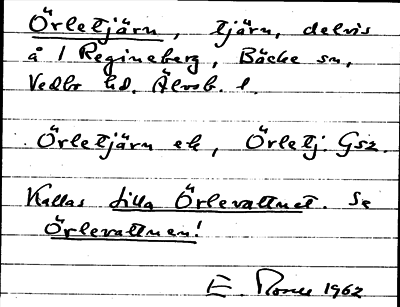 Örletjärn, tjärn, delvis
å 1 Regineberg, Bäcke sn,
Vedbo hd. Älvsb. l.
Örletjärn ek, Örletj. Gsz.
Kallas Lilla Örlevattnet. Se
Örlevattnen!
E. 1962